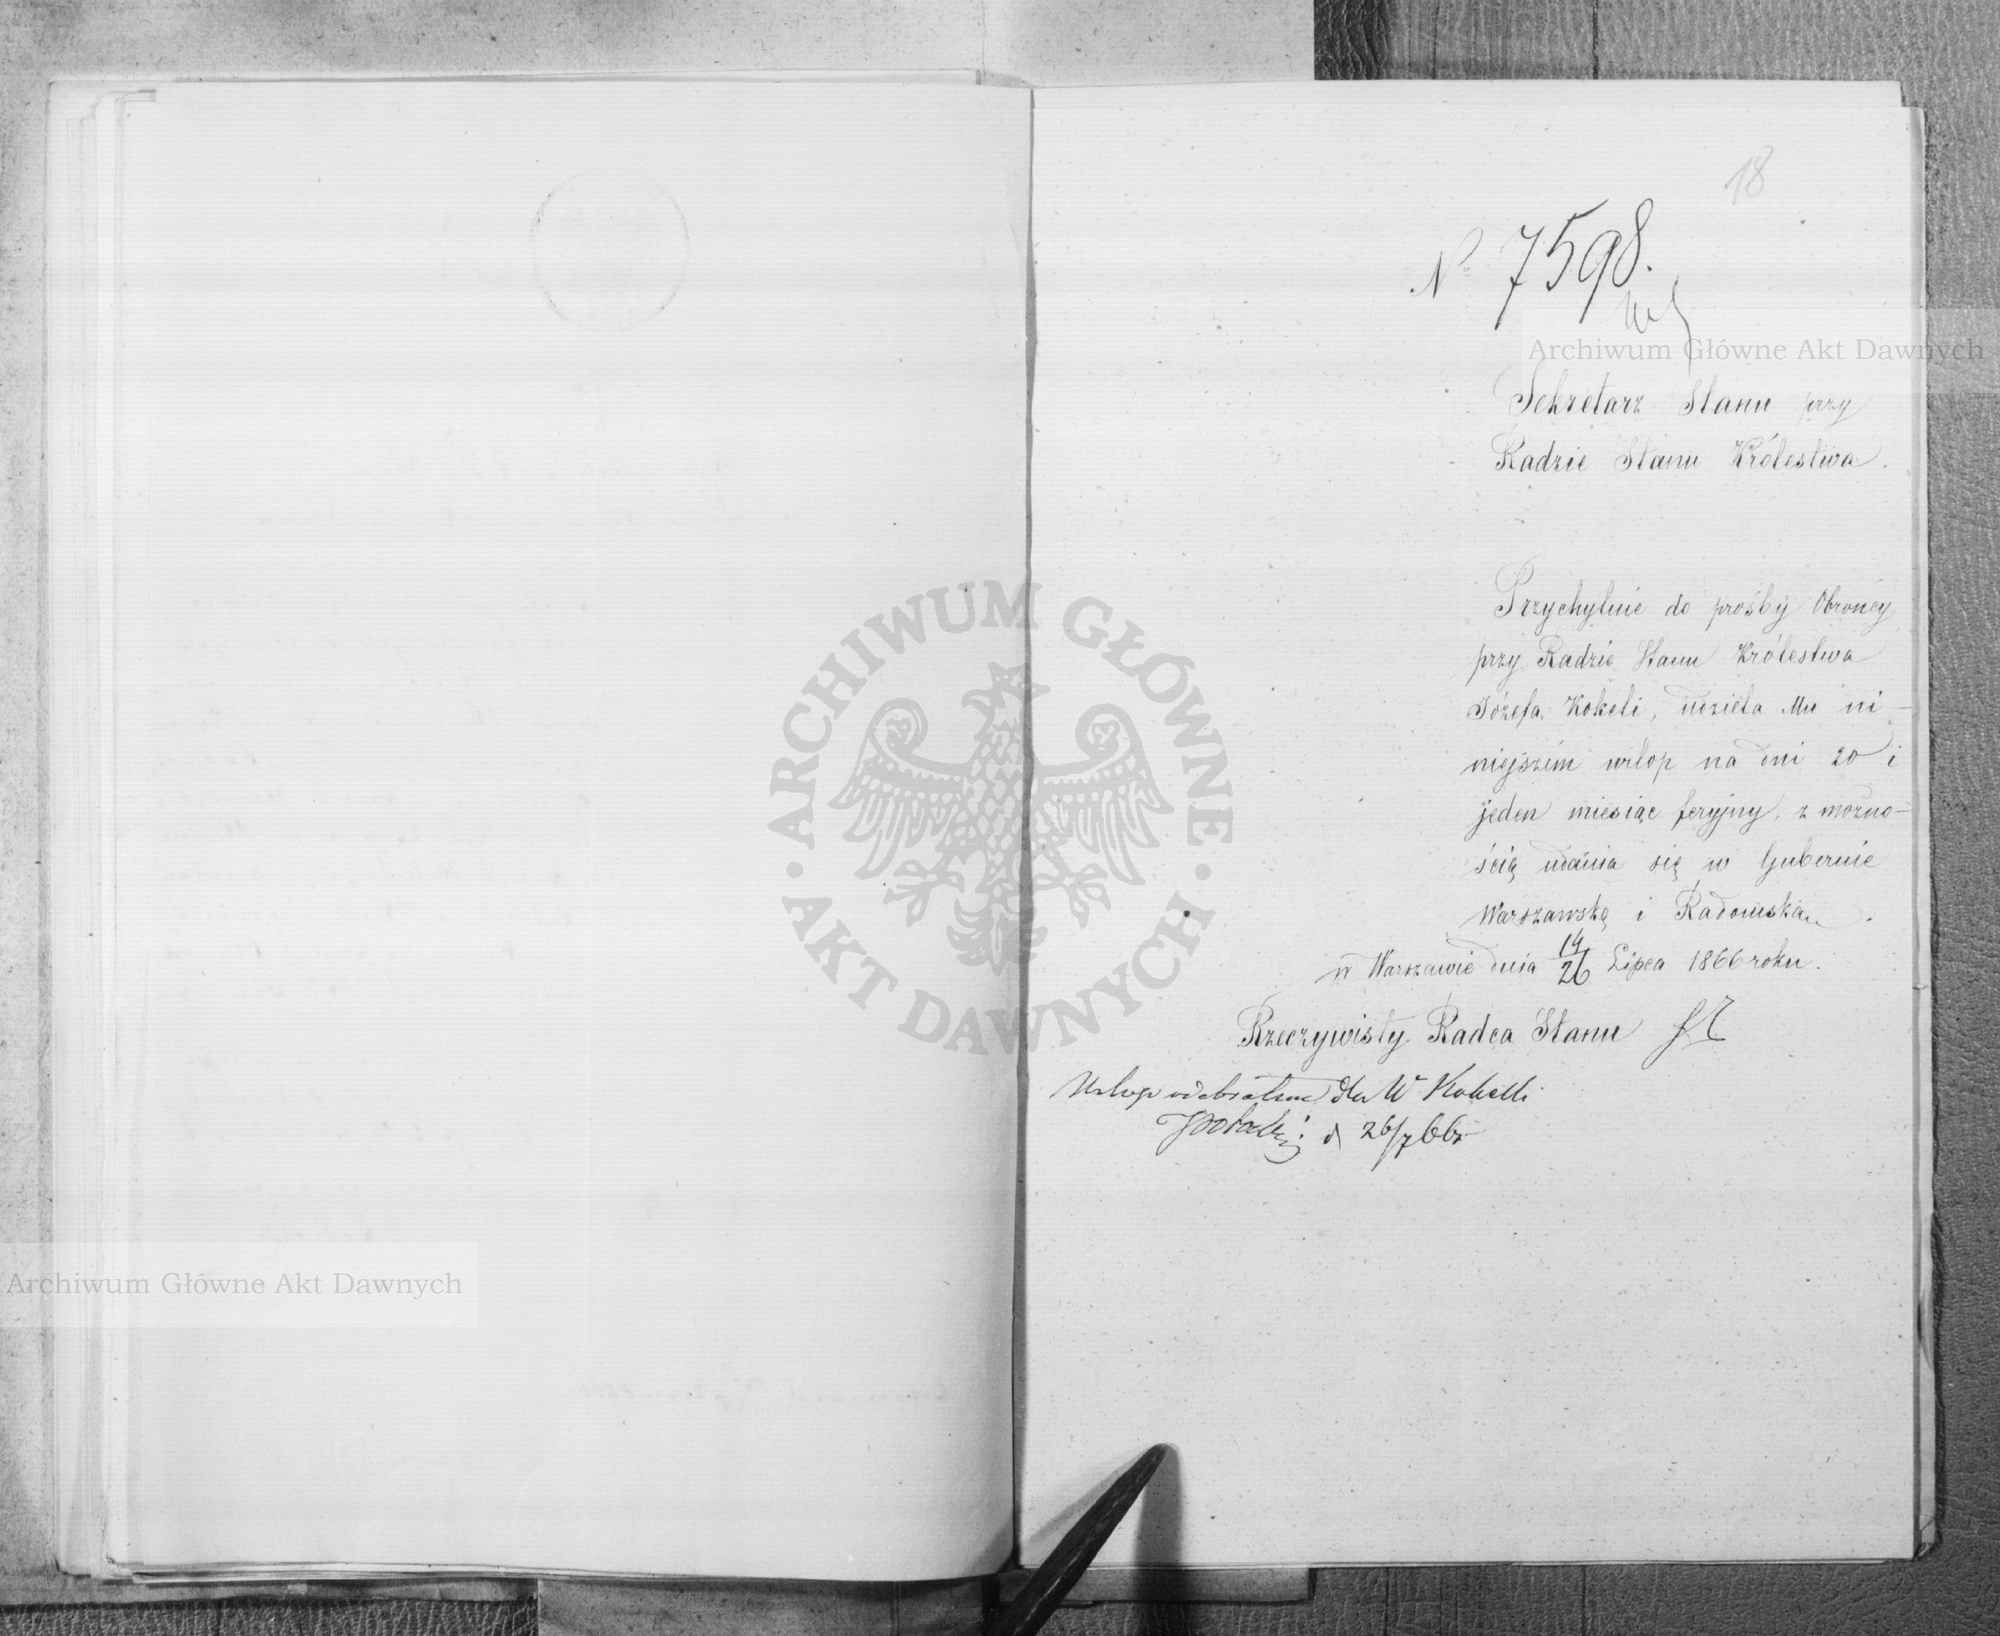 18
№ 7598.
Archiwum Główne Akt Dawnych
Sekretarz Stanu przy
Radzie Stanu Królestwa.
Przychylnie do prośby Obrońcy
przy Radzie Stanu Królestwa
Józefa Kokeli, udziela Mu ni-
niejszém urlop na dni 20 i
jeden miesiąc feryjny, z możno-
ścią udania się w Gubernie
Warszawską i Radomską.
w Warszawie dnia 14/26 Lipca 1866 roku.
Rzeczywisty Radca Stanu
Urlop odebrałem dla W Kokelli
d 26/7 66r
ARCHIWUM GŁÓWNE
AKT DAWNYCH
Archiwum Główne Akt Dawnych